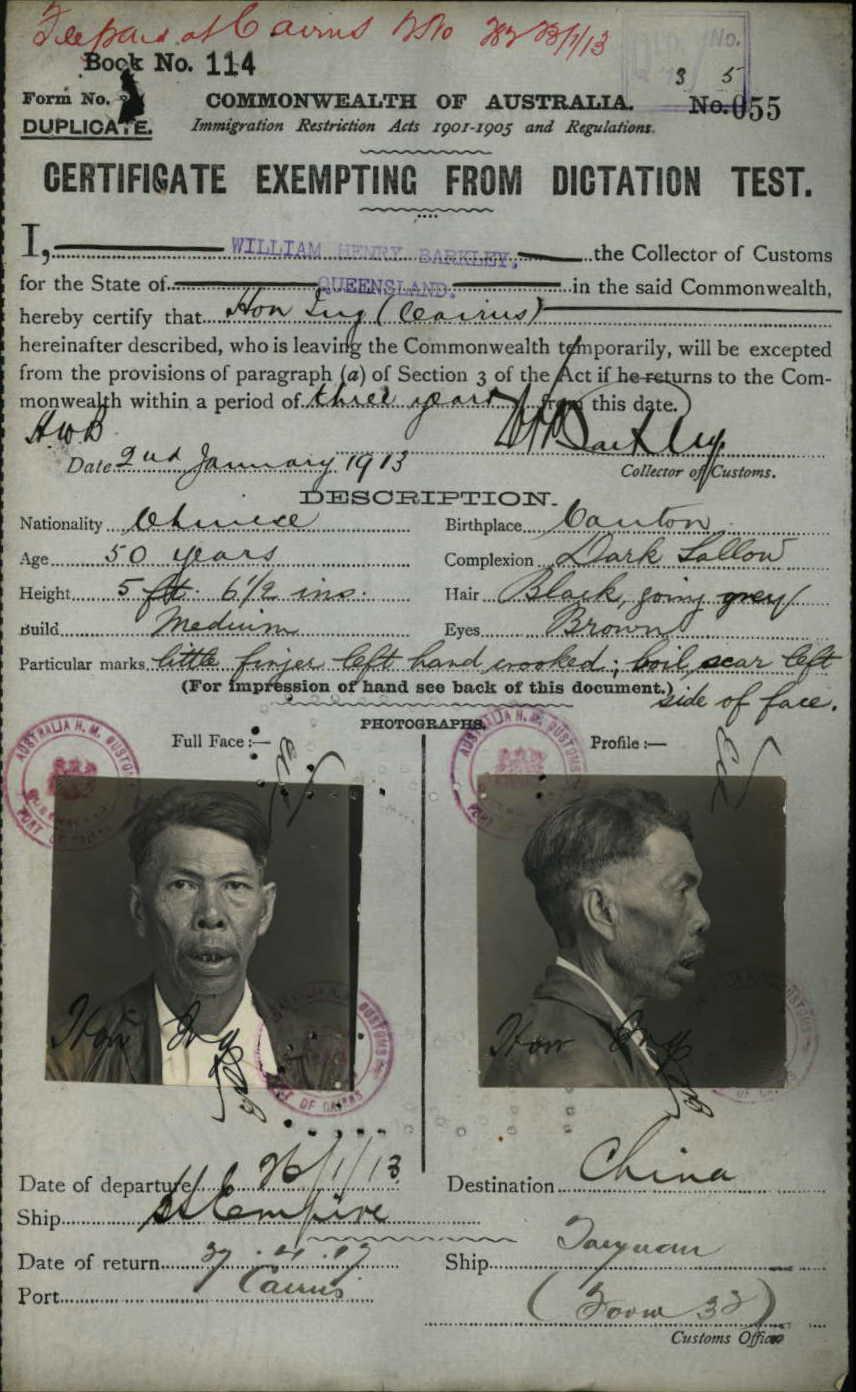 Cairns
Book No. 114
Form No.
3 5
COMMONWEALTH OF AUSTRALIA.
No. 055
DUPLICATE.
Immigration Restriction Acts 1901-1905 and Regulations.
CERTIFICATE EXEMPTING FROM DICTATION TEST.
I, WILLIAM HENRY BARKLEY, the Collector of Customs
for the State of QUEENSLAND. in the said Commonwealth,
hereby certify that Hon Ing (Cairns)
hereinafter described, who is leaving the Commonwealth temporarily, will be excepted
from the provisions of paragraph (a) of Section 3 of the Act if he returns to the Com-
monwealth within a period of three years from this date.
HWB
WHBarkley
Date 2nd January 1913
Collector of Customs.
DESCRIPTION.
Nationality Chinese
Birthplace Canton
Age 50 years
Complexion Dark Sallow
Height 5 ft. 6 1/2 ins.
Hair Black, going grey
Build Medium
Eyes Brown
Particular marks little finger left hand crooked; boil scar left
side of face.
(For impression of hand see back of this document.)
PHOTOGRAPHS.
Full Face :—
Profile :—
AUSTRALIA H.M. CUSTOMS
PORT OF
AUSTRALIA H.M. CUSTOMS
PORT
Hon Ing
Hon Ing
CUSTOMS
OF CAIRNS
Date of departure 26/1/13
Destination China
Ship SS Empire
Date of return
Ship Taiyuan
Port Cairns
(Form 32)
Customs Officer